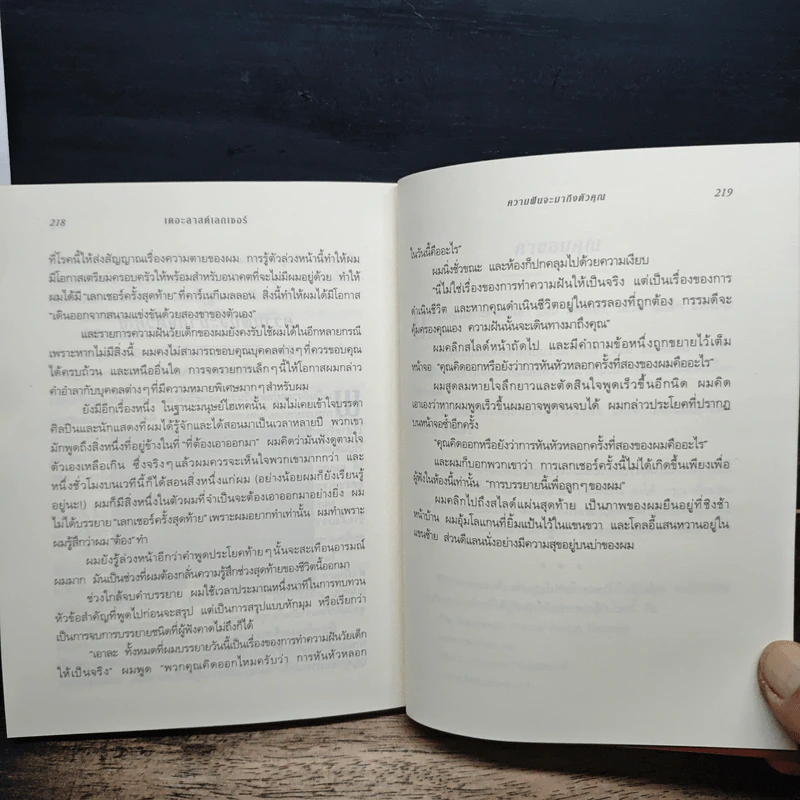 218
เดอะลาสต์เลกเชอร์
ที่โรคนี้ให้ส่งสัญญาณเรื่องความตายของผม การรู้ตัวล่วงหน้านี้ทำให้ผม
มีโอกาสเตรียมครอบครัวให้พร้อมสำหรับอนาคตที่จะไม่มีผมอยู่ด้วย ทำให้
ผมได้มี “เลกเชอร์ครั้งสุดท้าย” ที่คาร์เนกีเมลลอน สิ่งนี้ทำให้ผมได้มีโอกาส
“เดินออกจากสนามแข่งขันด้วยสองขาของตัวเอง”
และรายการความฝันวัยเด็กของผมยังคงรับใช้ผมได้ในอีกหลายกรณี
เพราะหากไม่มีสิ่งนี้ ผมคงไม่สามารถขอบคุณบุคคลต่างๆ ที่ควรขอบคุณ
ได้ครบถ้วน และเหนือสิ่งอื่นใด การจดรายการเล็กๆ นี้ให้โอกาสผมกล่าว
คำอำลากับบุคคลต่างๆ ที่มีความหมายพิเศษมากๆ สำหรับผม
ยังมีอีกเรื่องหนึ่ง ในฐานะมนุษย์ไฮเทคนั้น ผมไม่เคยเข้าใจบรรดา
ศิลปินและนักแสดงที่ผมได้รู้จักและได้สอนมาเป็นเวลาหลายปี พวกเขา
มักพูดถึงสิ่งหนึ่งที่อยู่ข้างในที่ “ที่ต้องเอาออกมา” ผมคิดว่ามันฟังดูตามใจ
ตัวเองเหลือเกิน ซึ่งจริงๆ แล้วผมควรจะเห็นใจพวกเขามากกว่า และ
หนึ่งชั่วโมงบนเวทีนี้ก็ได้สอนสิ่งหนึ่งแก่ผม (อย่างน้อยผมก็ยังเรียนรู้
อยู่นะ!) ผมก็มีสิ่งหนึ่งในตัวผมที่จำเป็นจะต้องเอาออกมาอย่างยิ่ง ผม
ไม่ได้บรรยาย “เลกเชอร์ครั้งสุดท้าย” เพราะผมอยากทำเท่านั้น ผมทำเพราะ
ผมรู้สึกว่าผม “ต้อง” ทำ
ผมยังรู้ล่วงหน้าอีกว่าคำพูดประโยคท้ายๆ นั้นจะสะเทือนอารมณ์
ผมมาก มันเป็นช่วงที่ผมต้องกลั่นความรู้สึกช่วงสุดท้ายของชีวิตนี้ออกมา
ช่วงใกล้จบคำบรรยาย ผมใช้เวลาประมาณหนึ่งนาทีในการทบทวน
หัวข้อสำคัญที่พูดไปก่อนจะสรุป แต่เป็นการสรุปแบบหักมุม หรือเรียกว่า
เป็นการจบการบรรยายชนิดที่ผู้ฟังคาดไม่ถึงก็ได้
“เอาละ ทั้งหมดที่ผมบรรยายวันนี้เป็นเรื่องของการทำความฝันวัยเด็ก
ให้เป็นจริง” ผมพูด “พวกคุณคิดออกไหมครับว่า การหันหัวหลอก
ความฝันจะมาถึงตัวคุณ
219
ในวันนี้คืออะไร”
ผมนิ่งชั่วขณะ และห้องก็ปกคลุมไปด้วยความเงียบ
“นี่ไม่ใช่เรื่องของการทำความฝันให้เป็นจริง แต่เป็นเรื่องของการ
ดำเนินชีวิต และหากคุณดำเนินชีวิตอยู่ในครรลองที่ถูกต้อง กรรมดีจะ
คุ้มครองคุณเอง ความฝันนั้นจะเดินทางมาถึงคุณ”
ผมคลิกสไลด์หน้าถัดไป และมีคำถามข้อหนึ่งถูกขยายไว้เต็ม
หน้าจอ “คุณคิดออกหรือยังว่าการหันหัวหลอกครั้งที่สองของผมคืออะไร”
ผมสูดลมหายใจลึกยาวและตัดสินใจพูดเร็วขึ้นอีกนิด ผมคิด
เอาเองว่าหากผมพูดเร็วขึ้นผมอาจพูดจนจบได้ ผมกล่าวประโยคที่ปรากฏ
บนหน้าจอซ้ำอีกครั้ง
“คุณคิดออกหรือยังว่าการหันหัวหลอกครั้งที่สองของผมคืออะไร”
และผมก็บอกพวกเขาว่า การเลกเชอร์ครั้งนี้ไม่ได้เกิดขึ้นเพียงเพื่อ
ผู้ฟังในห้องนี้เท่านั้น “การบรรยายนี้เพื่อลูกๆ ของผม”
ผมคลิกไปถึงสไลด์แผ่นสุดท้าย เป็นภาพของผมยืนอยู่ที่ชิงช้า
หน้าบ้าน ผมอุ้มโลแกนที่ยิ้มแป้นไว้ในแขนขวา และโคลอี้แสนหวานอยู่ใน
แขนซ้าย ส่วนดีแลนนั่งอย่างมีความสุขอยู่บนบ่าของผม